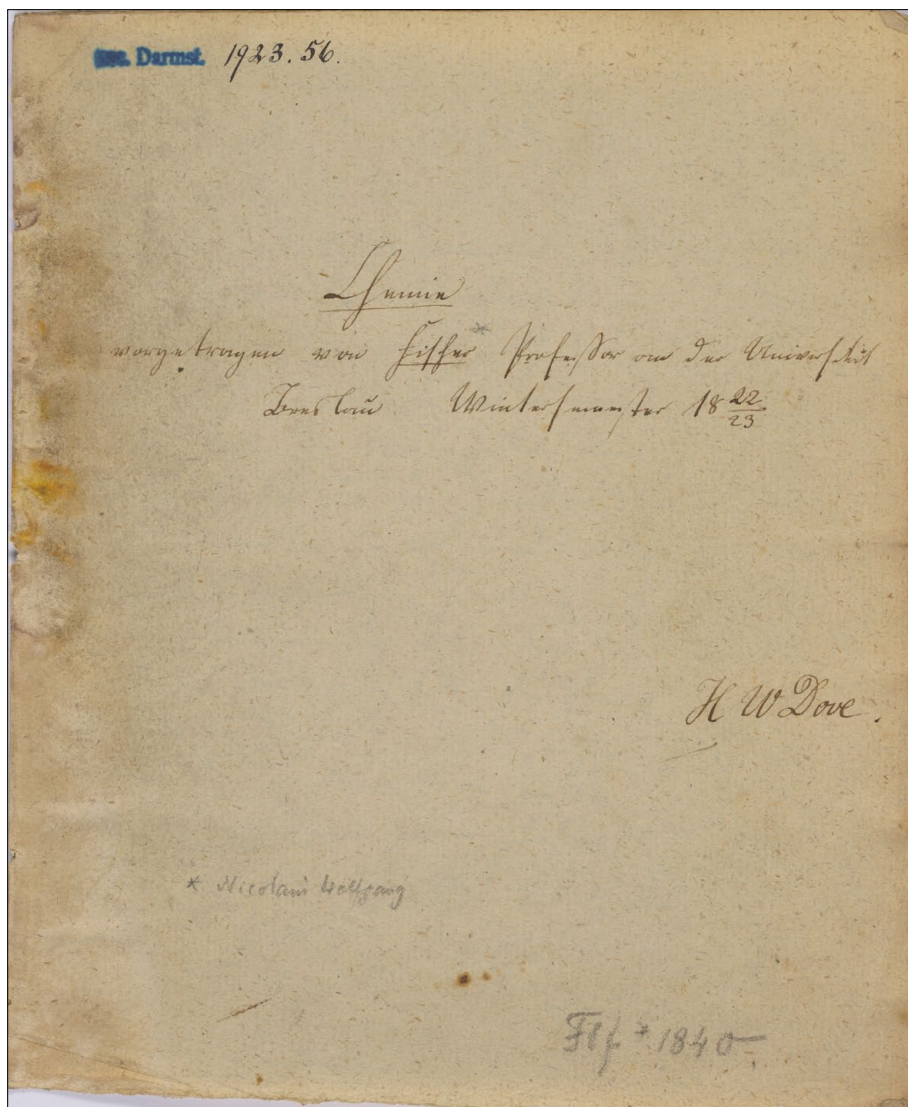 acc. Darmst. 1923. 56.
Chemie
vorgetragen von Fischer * Professor an der Universität
Breslau Wintersemester 18 22/23
H W Dove.
* Nicolaus Wolfgang
1840